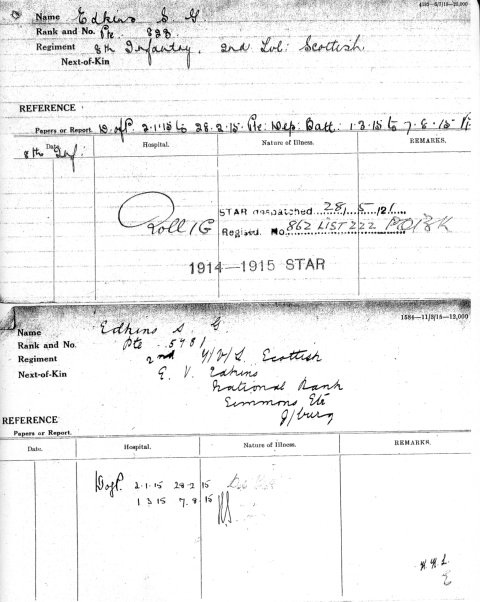 4195—6/7/15—20,000
Name Edkins S. G.
Rank and No. Pte. 828
Regiment 8th Infantry. 2nd Tvl: Scottish.
Next-of-Kin
REFERENCE
Papers or Report. D. of P. 2.1.15 to 28.2.15 Pte: Dep: Batt: 1.3.15 to 7.8.15
8th Inf:
Date. Hospital. Nature of Illness. REMARKS.
Roll 1G
STAR despatched 28/5/21
Registd. No. 862 LIST 222
1914—1915 STAR
1584—11/8/15—12,000
Name Edkins S. G.
Rank and No. Pte 5781
Regiment 2nd Scottish
Next-of-Kin E. V. Edkins
National Bank
Simmons Ste
J/burg
REFERENCE
Papers or Report.
Date. Hospital. Nature of Illness. REMARKS.
D of P. 2.1.15 28.2.15
1 3 15 7.8.15